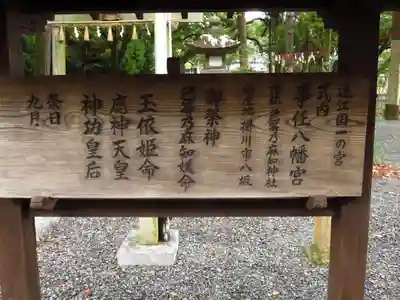 遠江国一の宮
式内
事任八幡宮
己等乃麻知神社
鎮座地 掛川市八坂
御祭神
己等乃麻知媛命
玉依姫命
應神天皇
神功皇后
祭日
九月